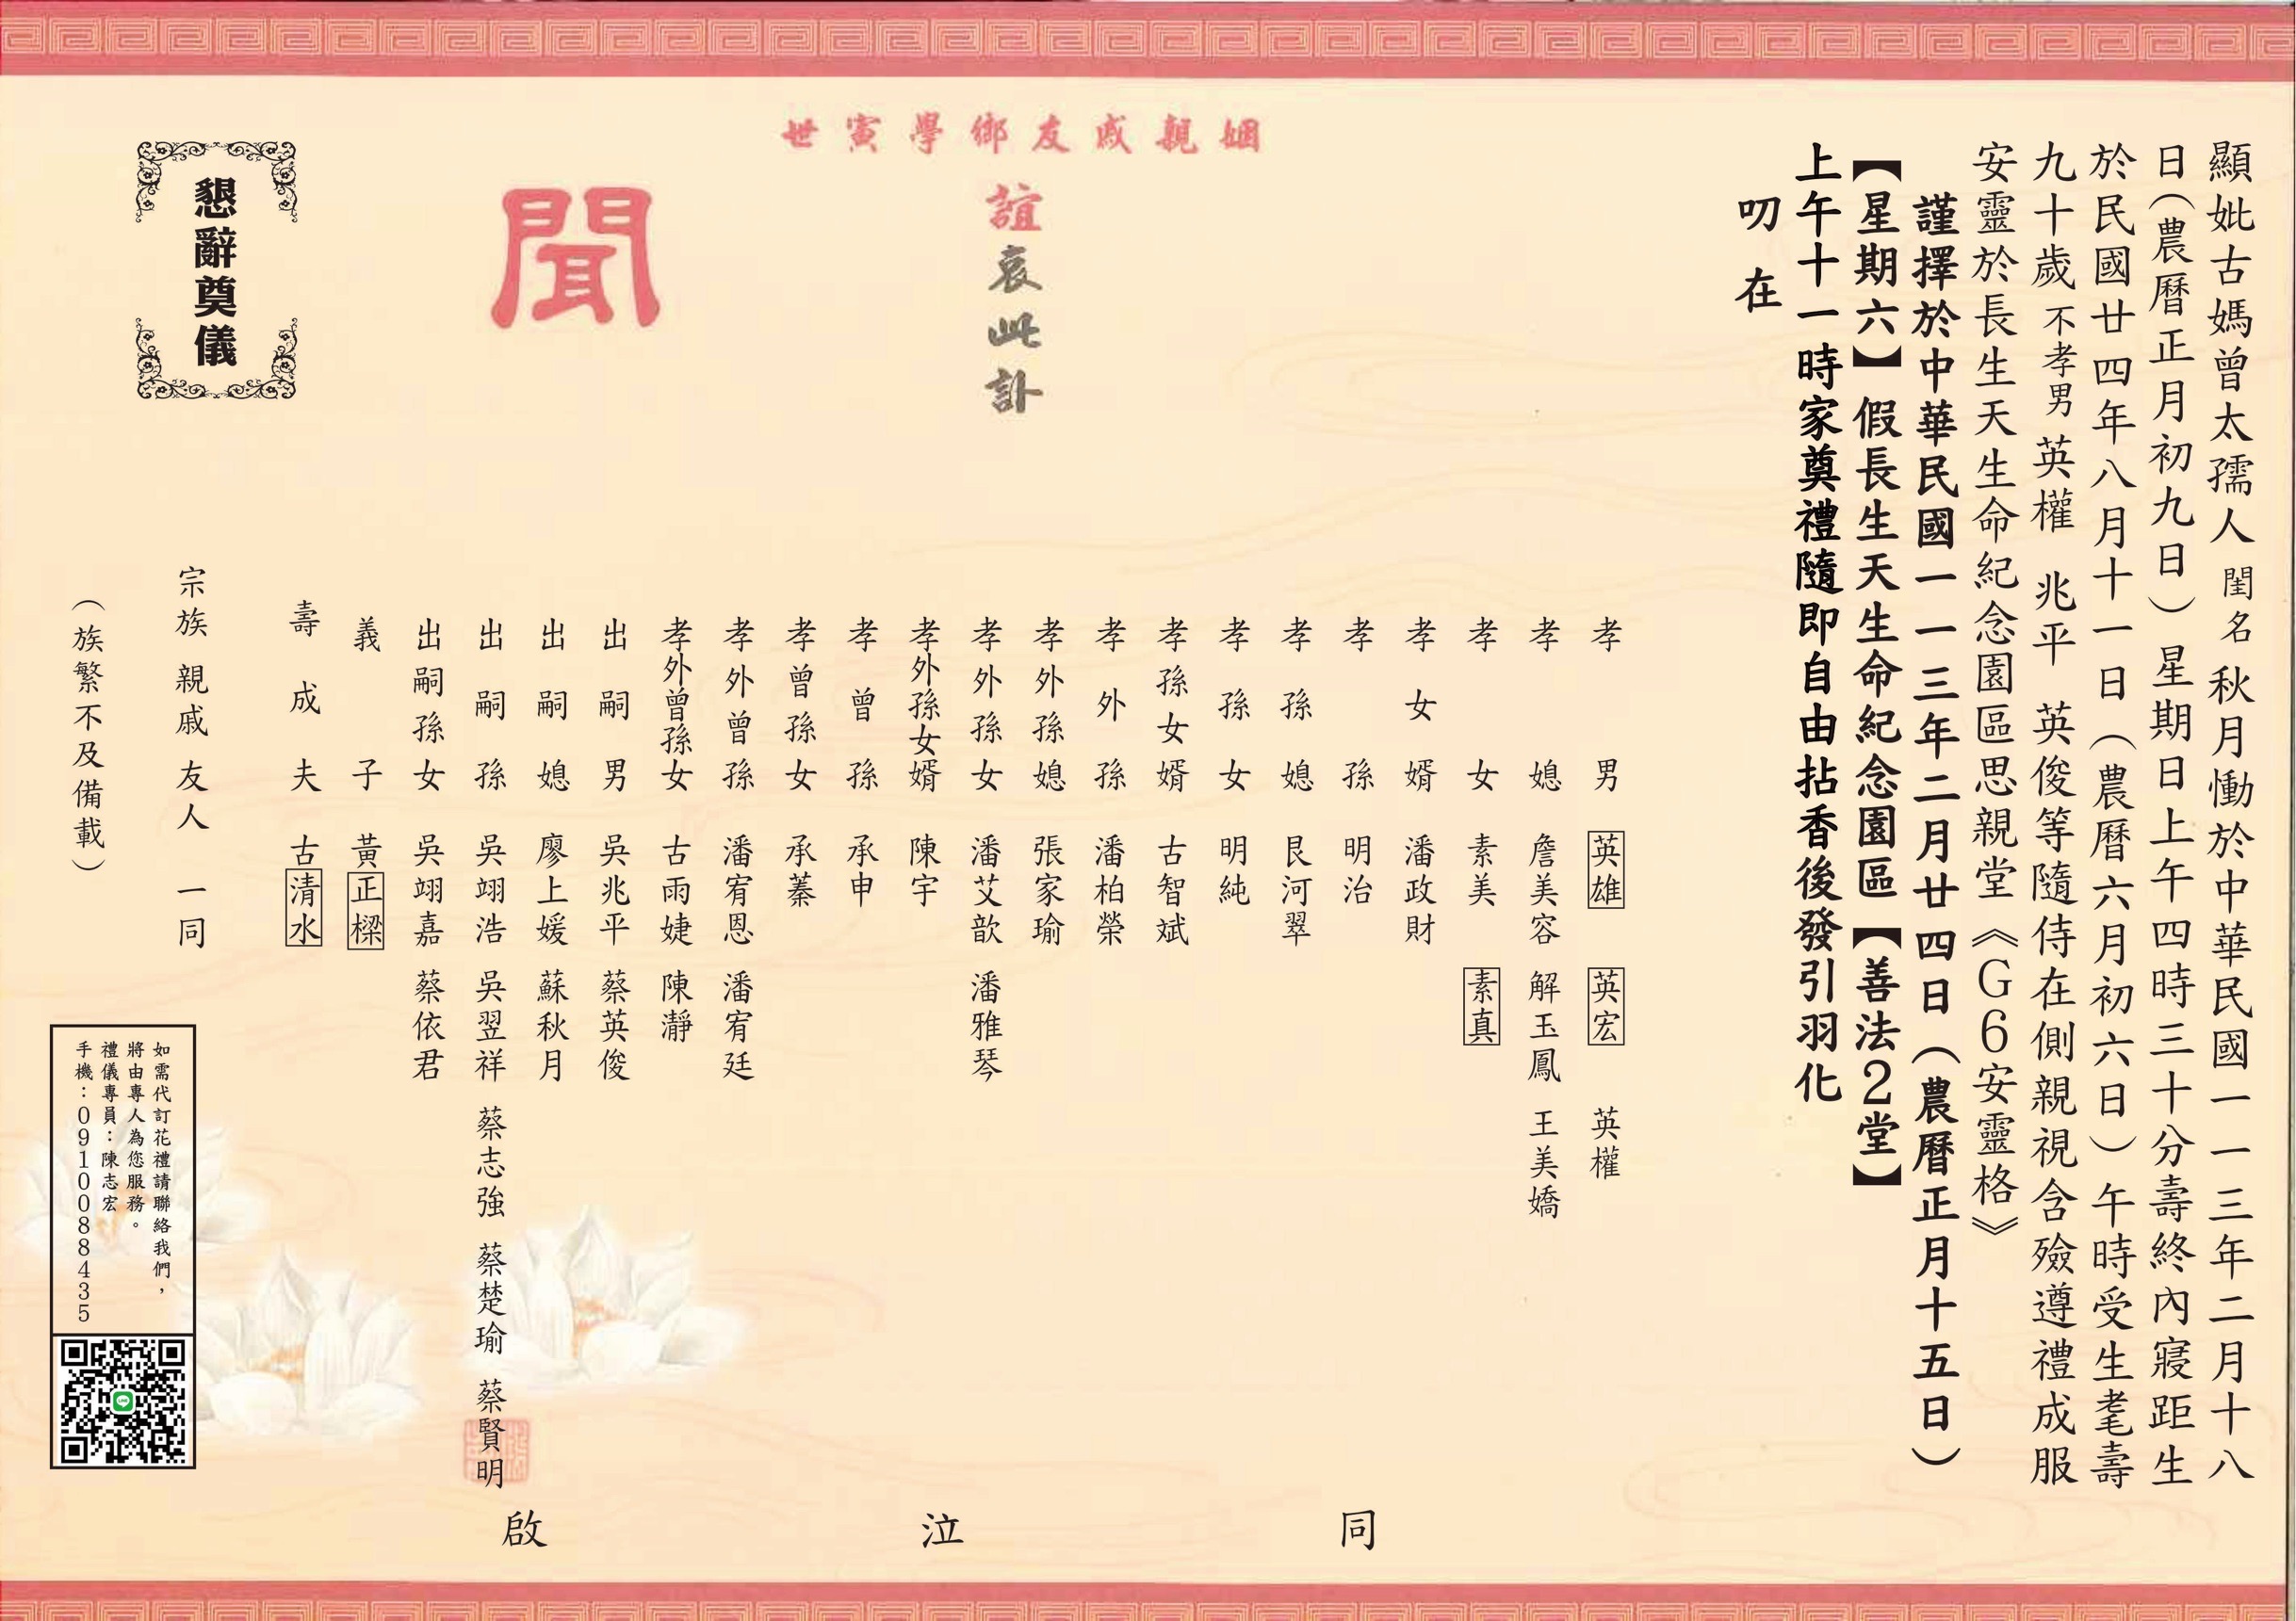 顯妣古媽曾太孺人閨名秋月慟於中華民國一一三年二月十八
日（農曆正月初九日）星期日上午四時三十分壽終內寢距生
於民國廿四年八月十一日（農曆六月初六日）午時受生耄壽
九十歲不孝男英權 兆平 英俊等隨侍在側親視含殮遵禮成服
安靈於長生天生命紀念園區思親堂《G6安靈格》
謹擇於中華民國一一三年二月廿四日（農曆正月十五日）
【星期六】假長生天生命紀念園區【善法2堂】
上午十一時家奠禮隨即自由拈香後發引羽化
叨 在
姻親戚友鄉學寅世
誼哀此訃
聞
孝男 英雄 英宏 英權
孝媳 詹美容 解玉鳳 王美嬌
孝女 素美 素真
孝女婿 潘政財
孝孫 明治
孝孫媳 艮河翠
孝孫女 明純
孝孫女婿 古智斌
孝外孫 潘柏榮
孝外孫媳 張家瑜
孝外孫女 潘艾歆 潘雅琴
孝外孫女婿 陳宇
孝曾孫 承申
孝曾孫女 承蓁
孝外曾孫 潘宥恩 潘宥廷
孝外曾孫女 古雨婕 陳瀞
出嗣男 吳兆平 蔡英俊
出嗣媳 廖上媛 蘇秋月
出嗣孫 吳翊浩 吳翌祥 蔡志強 蔡楚瑜 蔡賢明
出嗣孫女 吳翊嘉 蔡依君
義子 黃正樑
壽成夫 古清水
同 泣 啟
宗族 親戚 友人 一同
（族繁不及備載）
懇辭奠儀
如需代訂花禮請聯絡我們，
將由專人為您服務。
禮儀專員：陳志宏
手機：0910088435